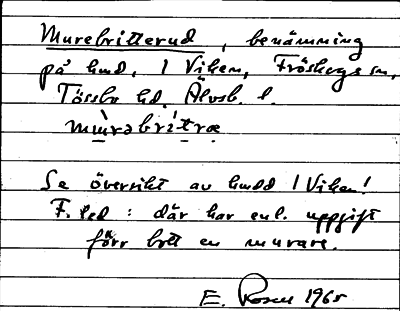 Murebritterud, benämning
på hmd. i Viken, Fröskogs sn,
Tössbo hd, Älvsb. l.
mu̇̀rəbrítrœ
Se översikt av hmdd i Viken!
F.led: där har enl. uppgift
förr bott en murare.
E. Rosen 1965